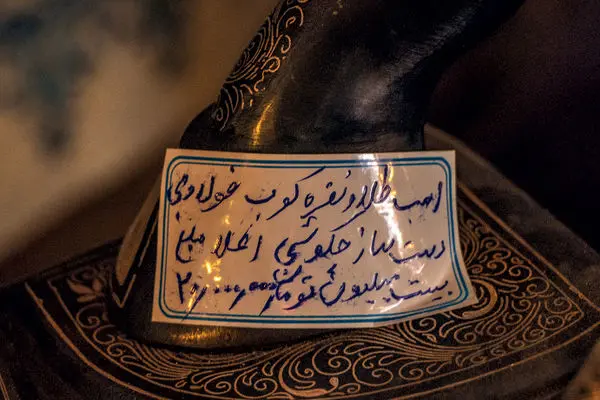 اسب طلا و نقره کوب فولادی
دست ساز چکوشی اعلا
بیست میلیون تومان ۲۰,۰۰۰,۰۰۰